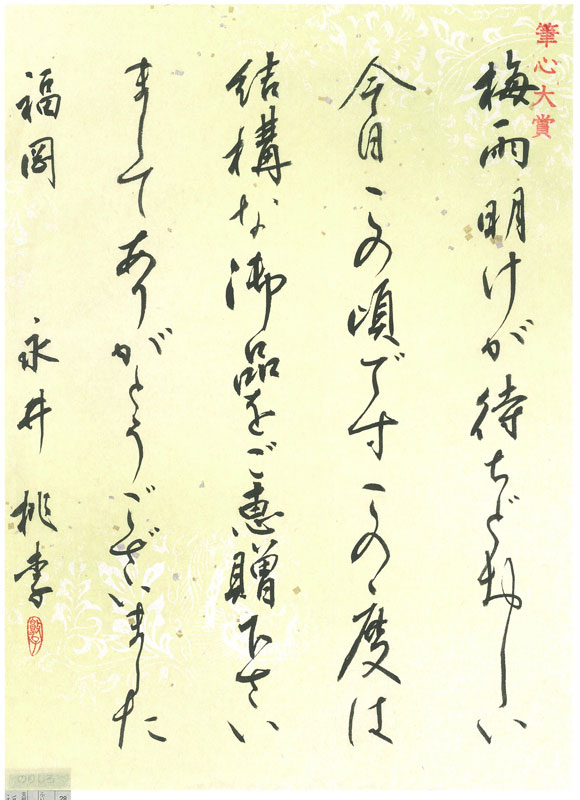 筆心大賞
梅雨明けが待ちどおしい
今日この頃ですこの度は
結構な御品をご恵贈下さい
ましてありがとうございました
福岡 永井 桃李
のりしろ
28